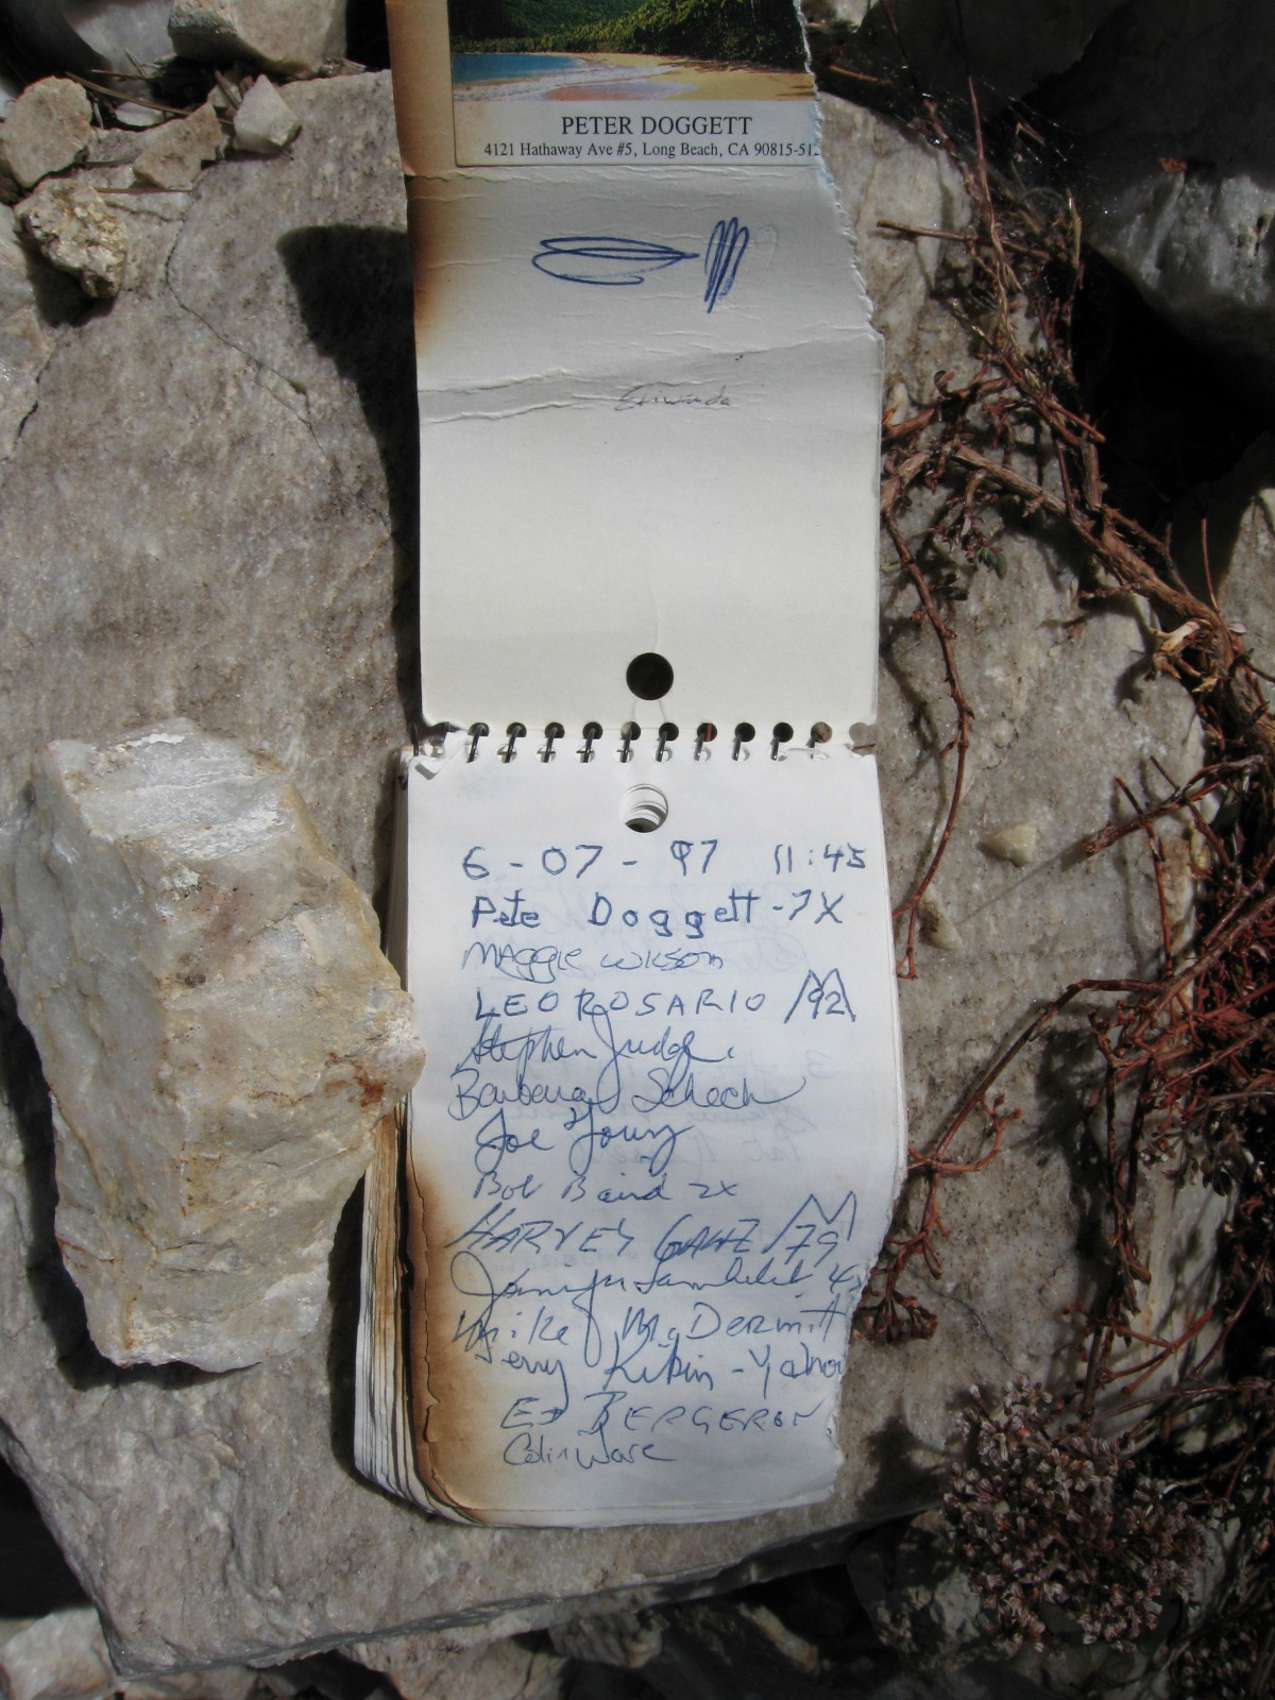 PETER DOGGETT
4121 Hathaway Ave #5, Long Beach, CA 90815-51
6-07-97 11:45
Pete Doggett-7X
MAGGIE WILSON
LEO ROSARIO M 92
Stephen Judge
Barbara Schech
Joe Young
Bob Baird 2x
HARVEY GANZ M 79
Jennifer
Mike McDermitt
Jerry Kibin - Yahoo
ED BERGERON
Colin Ware